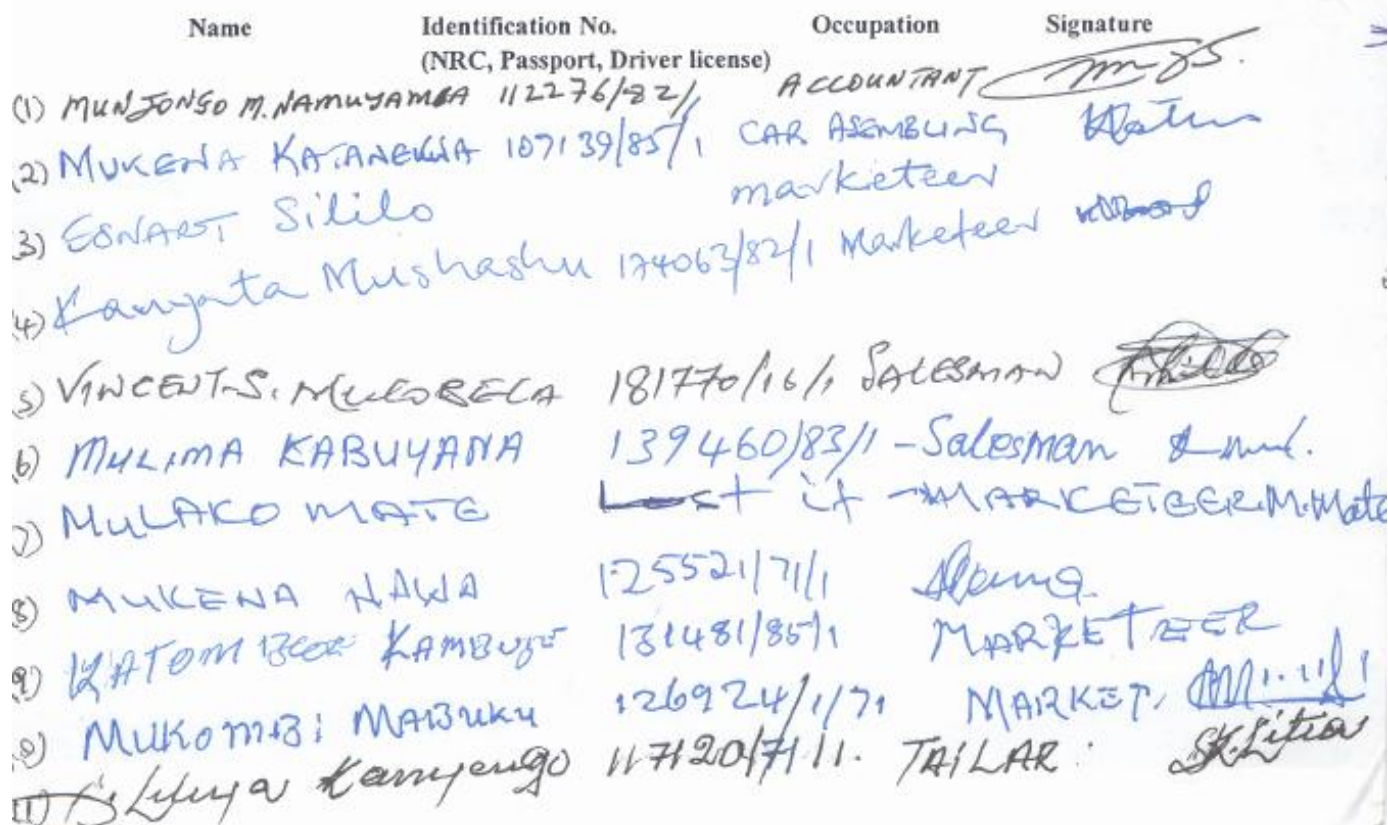 Name Identification No. Occupation Signature
(NRC, Passport, Driver license)
(1) MUNJONGO M. NAMUYAMBA 112276/82/1 ACCOUNTANT
(2) MUKENA KATANEKWA 107139/85/1 CAR ASEMBLING
3) ESNART Sililo marketeer
(4) Kangata Mushashu 174063/82/1 Marketeer
5) VINCENT S. MULOBELA 181770/16/1 SALESMAN
6) MULIMA KABUYANA 139460/83/1 - Salesman
7) MULAKO MATE Lost it - MARKETEER M.Mate
8) MUKENA NAWA 125521/71/1
9) KATOM KAMBUJE 131481/85/1 MARKETEER
0) MUKOMBI MABUKU 126924/1/71 MARKET,
11) Kamyengo 117120/71/1. TAILAR : SK.Litia